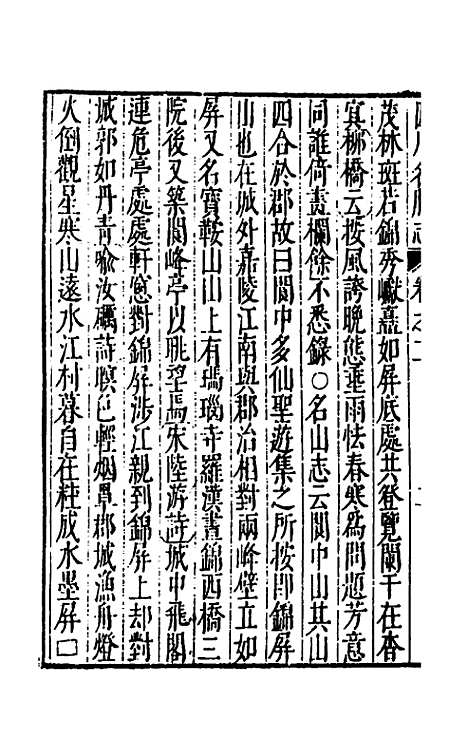 茂林斑若錦秀巘嘉如屏底處共登覽闌干在杳
冥柳橋云按風誇晚態垂雨怯春寒為問題芳意
同誰倚畫欄餘不悉錄○名山志云閬中山其山
四合於郡故曰閬中多仙聖遊集之所按即錦屏
山也在城外嘉陵江南與郡治相對兩峰壁立如
屏又名寶鞍山山上有瑪瑙寺羅漢晝錦西橋三
院後又築閬峰亭以眺望焉宋陸游詩城中飛閣
連危亭處處軒窻對錦屏涉江親到錦屏上却對
城郭如丹青喩汝礪詩暝色輕烟罩郡城漁舟燈
火倒觀星寒山遠水江村暮自在粧成水墨屏□